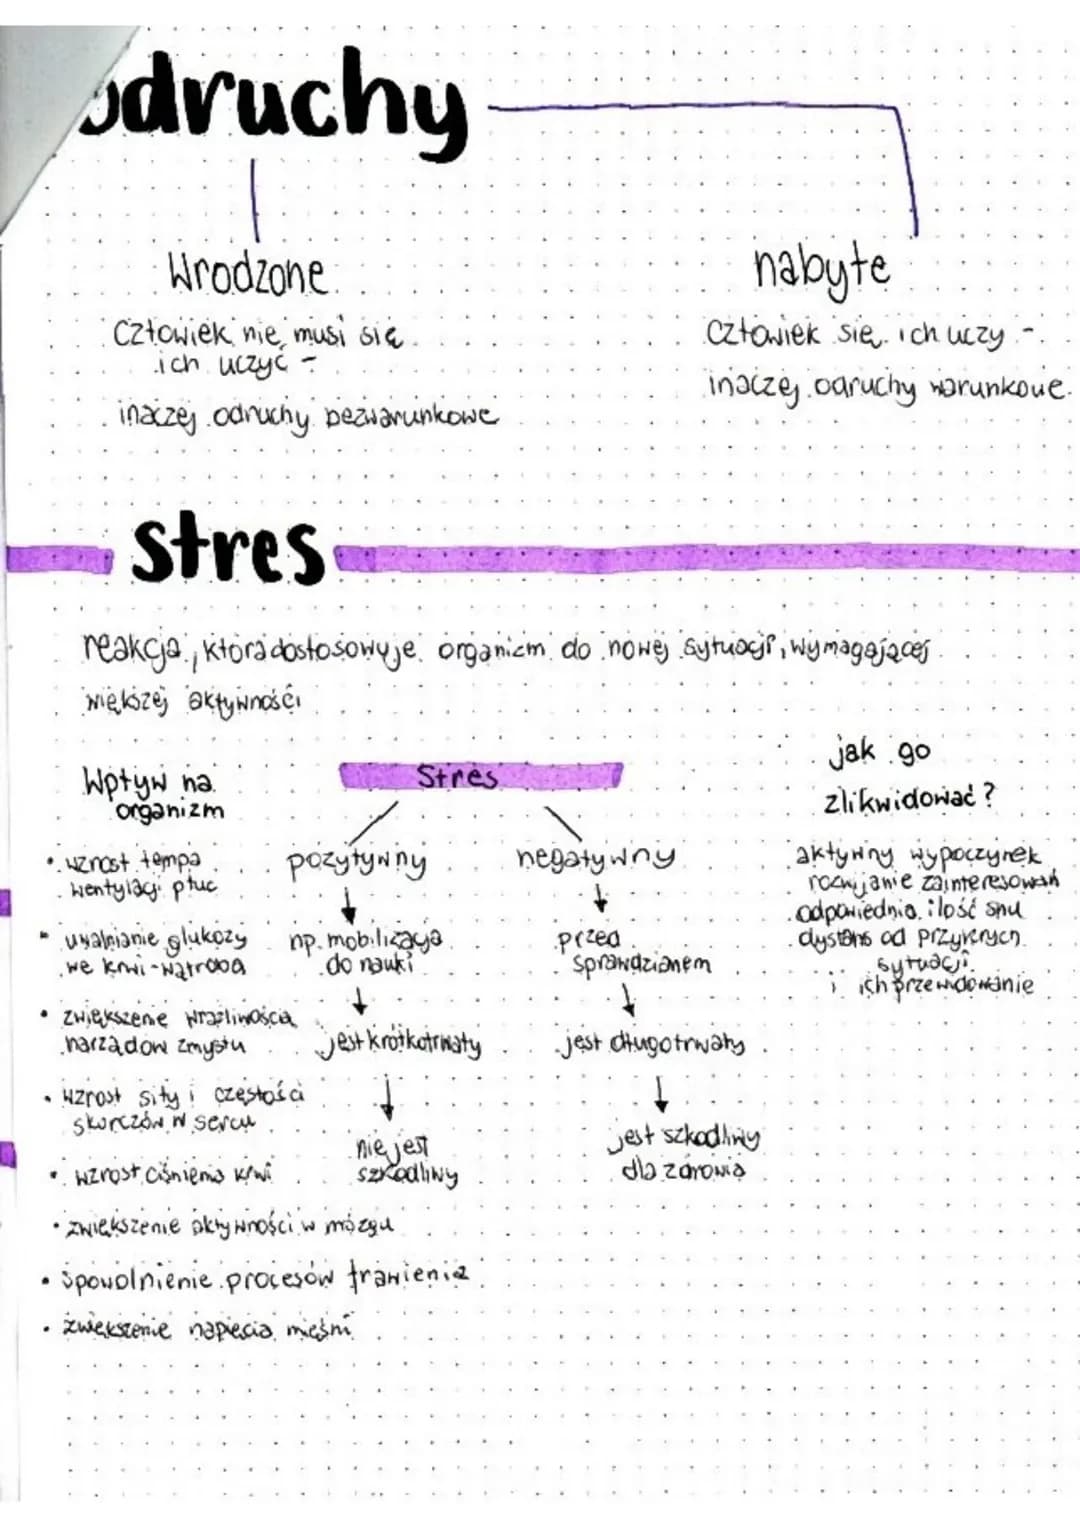 odruchy
Wrodzone
Człowiek nie musi się
ich uczyć -
inaczej odruchy bezwarunkowe
nabyte
Człowiek się ich uczy -
inaczej odruchy warunkowe
stres
reakcja, która dostosowuje organizm do nowej sytuacji, wymagającej
większej aktywności
Wpływ na
organizm
• wzrost tempa
wentylacji płuc
• uwalnianie glukozy
we krwi - wątroba
• zwiększenie wrażliwościa
narządów zmysłu
• wzrost siły i częstości
skurczów w sercu
• wzrost ciśnienia krwi
• zwiększenie aktywności w mózgu
• spowolnienie procesów trawienia
• zwiększenie napięcia mięśni
Stres
pozytywny
np. mobilizacja
do nauki
jest krótkotrwały
nie jest
szkodliwy
negatywny
przed
sprawdzianem
jest długotrwały
jest szkodliwy
dla zdrowia
jak go
zlikwidować?
aktywny wypoczynek
rozwijanie zainteresowań
odpowiednia ilość snu
dystans od przykrych
sytuacji
i ich przewidowanie